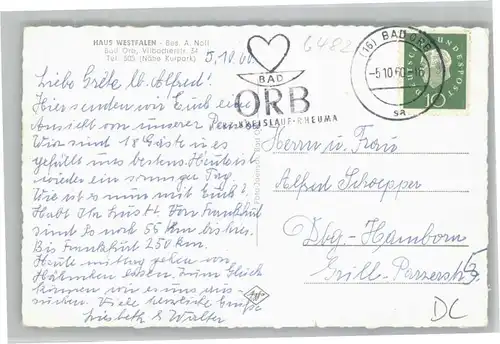 HAUS WESTFALEN - Bes. A. Noll
Bad Orb, Villbacherstr. 51
Tel. 503 (Nähe Kurpark)
5.10.60.
6482
BAD
ORB
KREISLAUF-RHEUMA
(16) BAD ORB
-5.10.60.
sa
DEUTSCHE BUNDESPOST
10
Liebe Grete, lb. Alfred!
Hier senden wir Euch eine
Ansicht von unserer Pension
Wir sind 18 Gäste u. es
gefällt uns bestens. Heute ist
wieder ein sonniger Tag.
Wie ist es nun mit Euch?
Habt Ihr Lust? Von Frankfurt
sind es noch 55 km bis hier.
Bis Frankfurt 250 km.
Heute mittag gehen wir
Hähnchen essen. Zum Glück
können wir es uns aus-
suchen. Viele herzliche Grüße
Liesbeth & Walter
Herrn u. Frau
Alfred Schoepper
Dbg.-Hamborn
Grill-Parzerstr. 5
DC